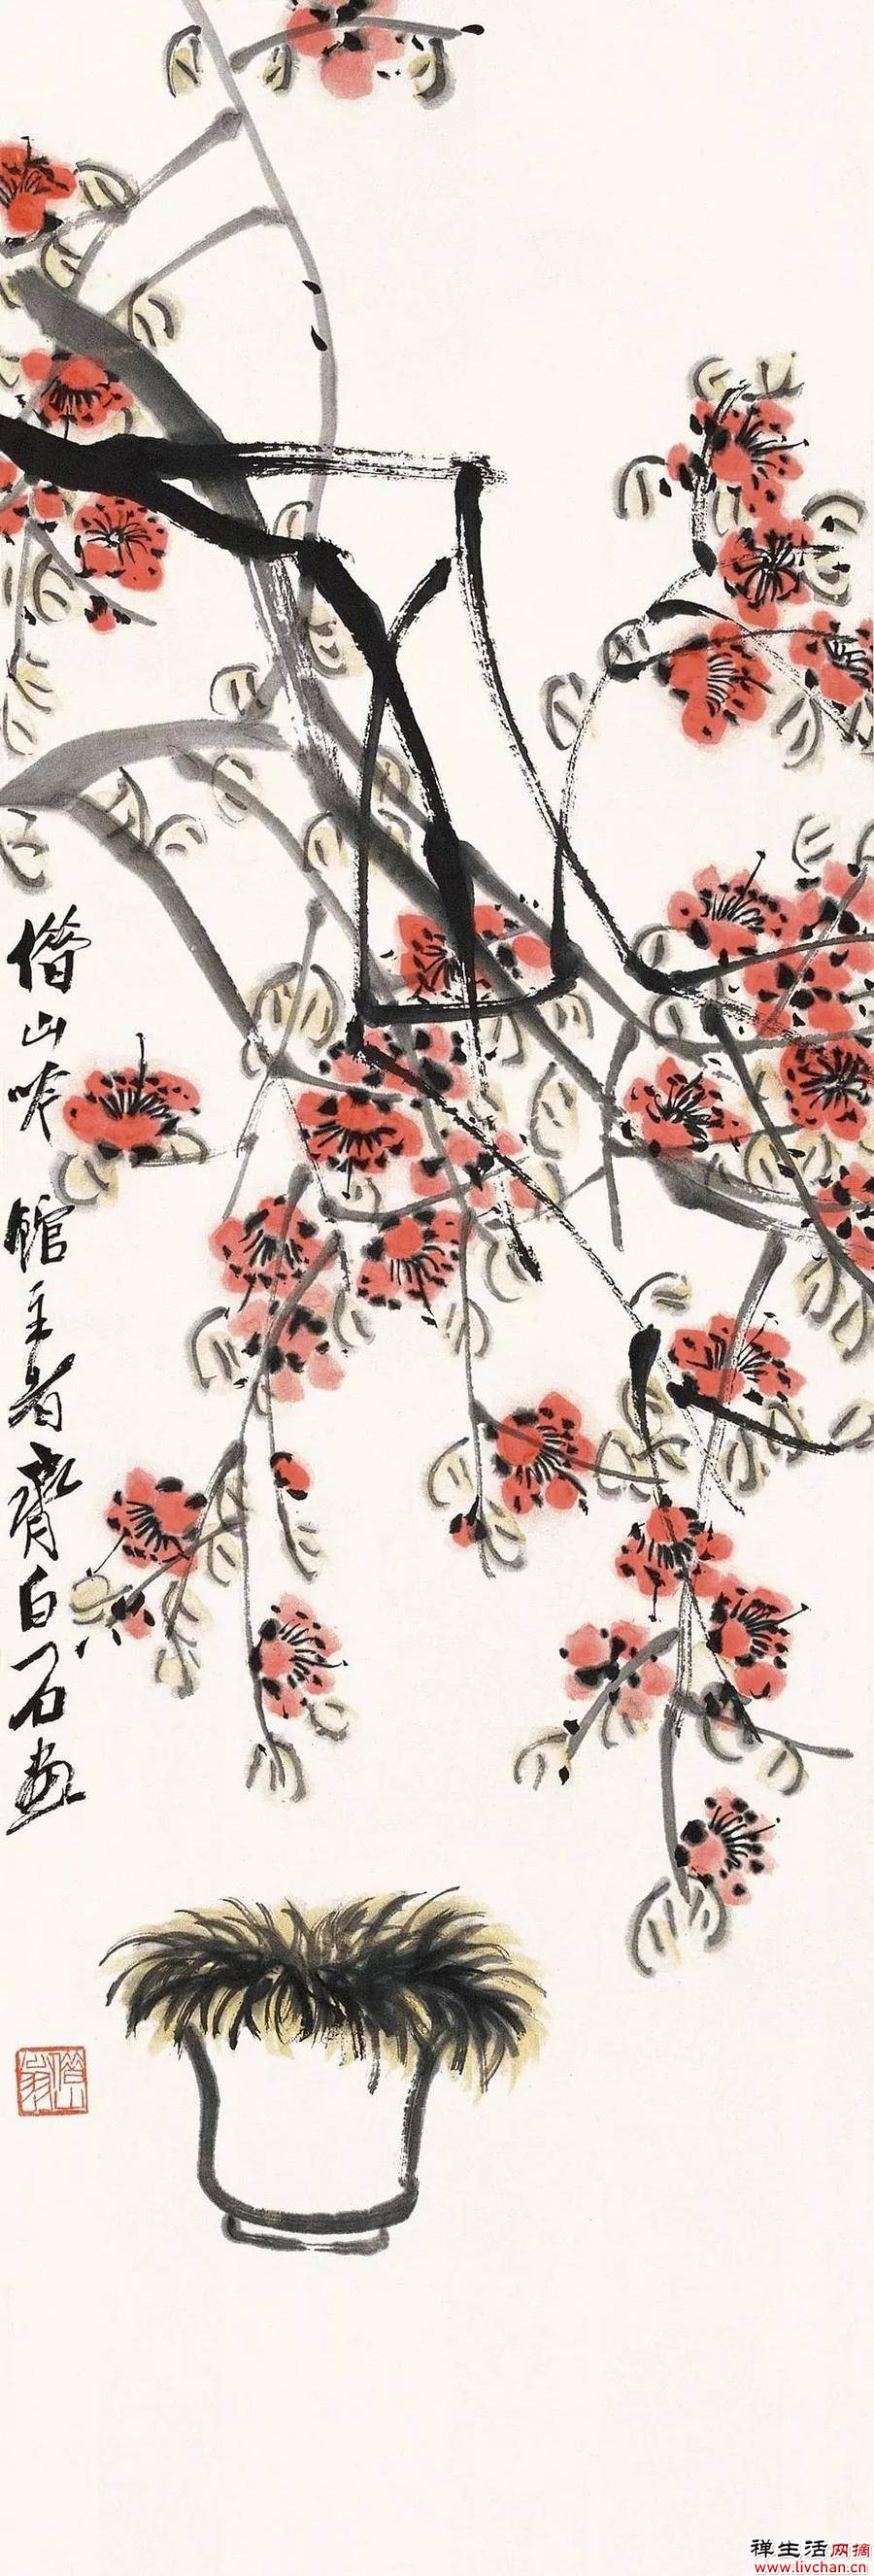 借山吟館主者齊白石畫
借山翁
禅生活网摘
www.livchan.cn